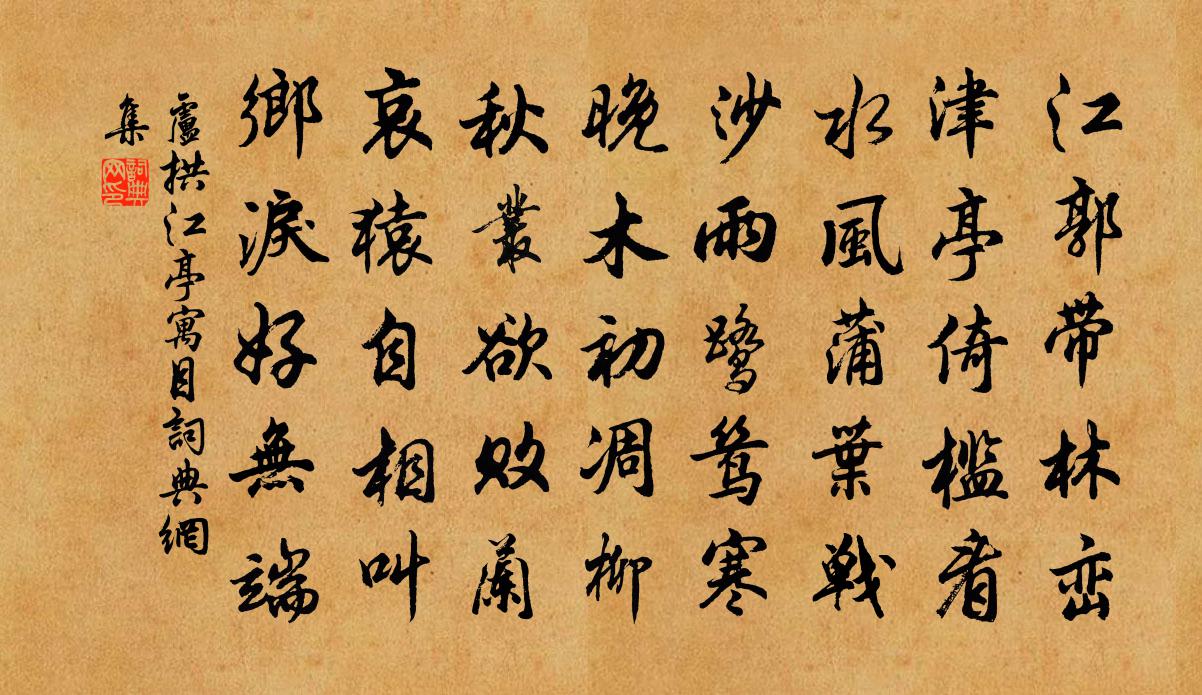 江郭带林巒
津亭倚檻看
水風蒲葉戰
沙雨鷺鷥寒
晚木初凋柳
秋叢欲敗蘭
哀猿自相叫
鄉淚好無端
盧拱江亭寓目詞典網
集
詞典網印